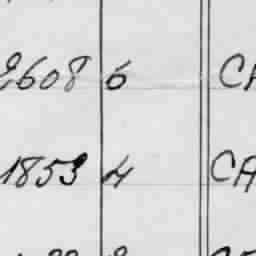 2608 6 CA
1853 4 CA